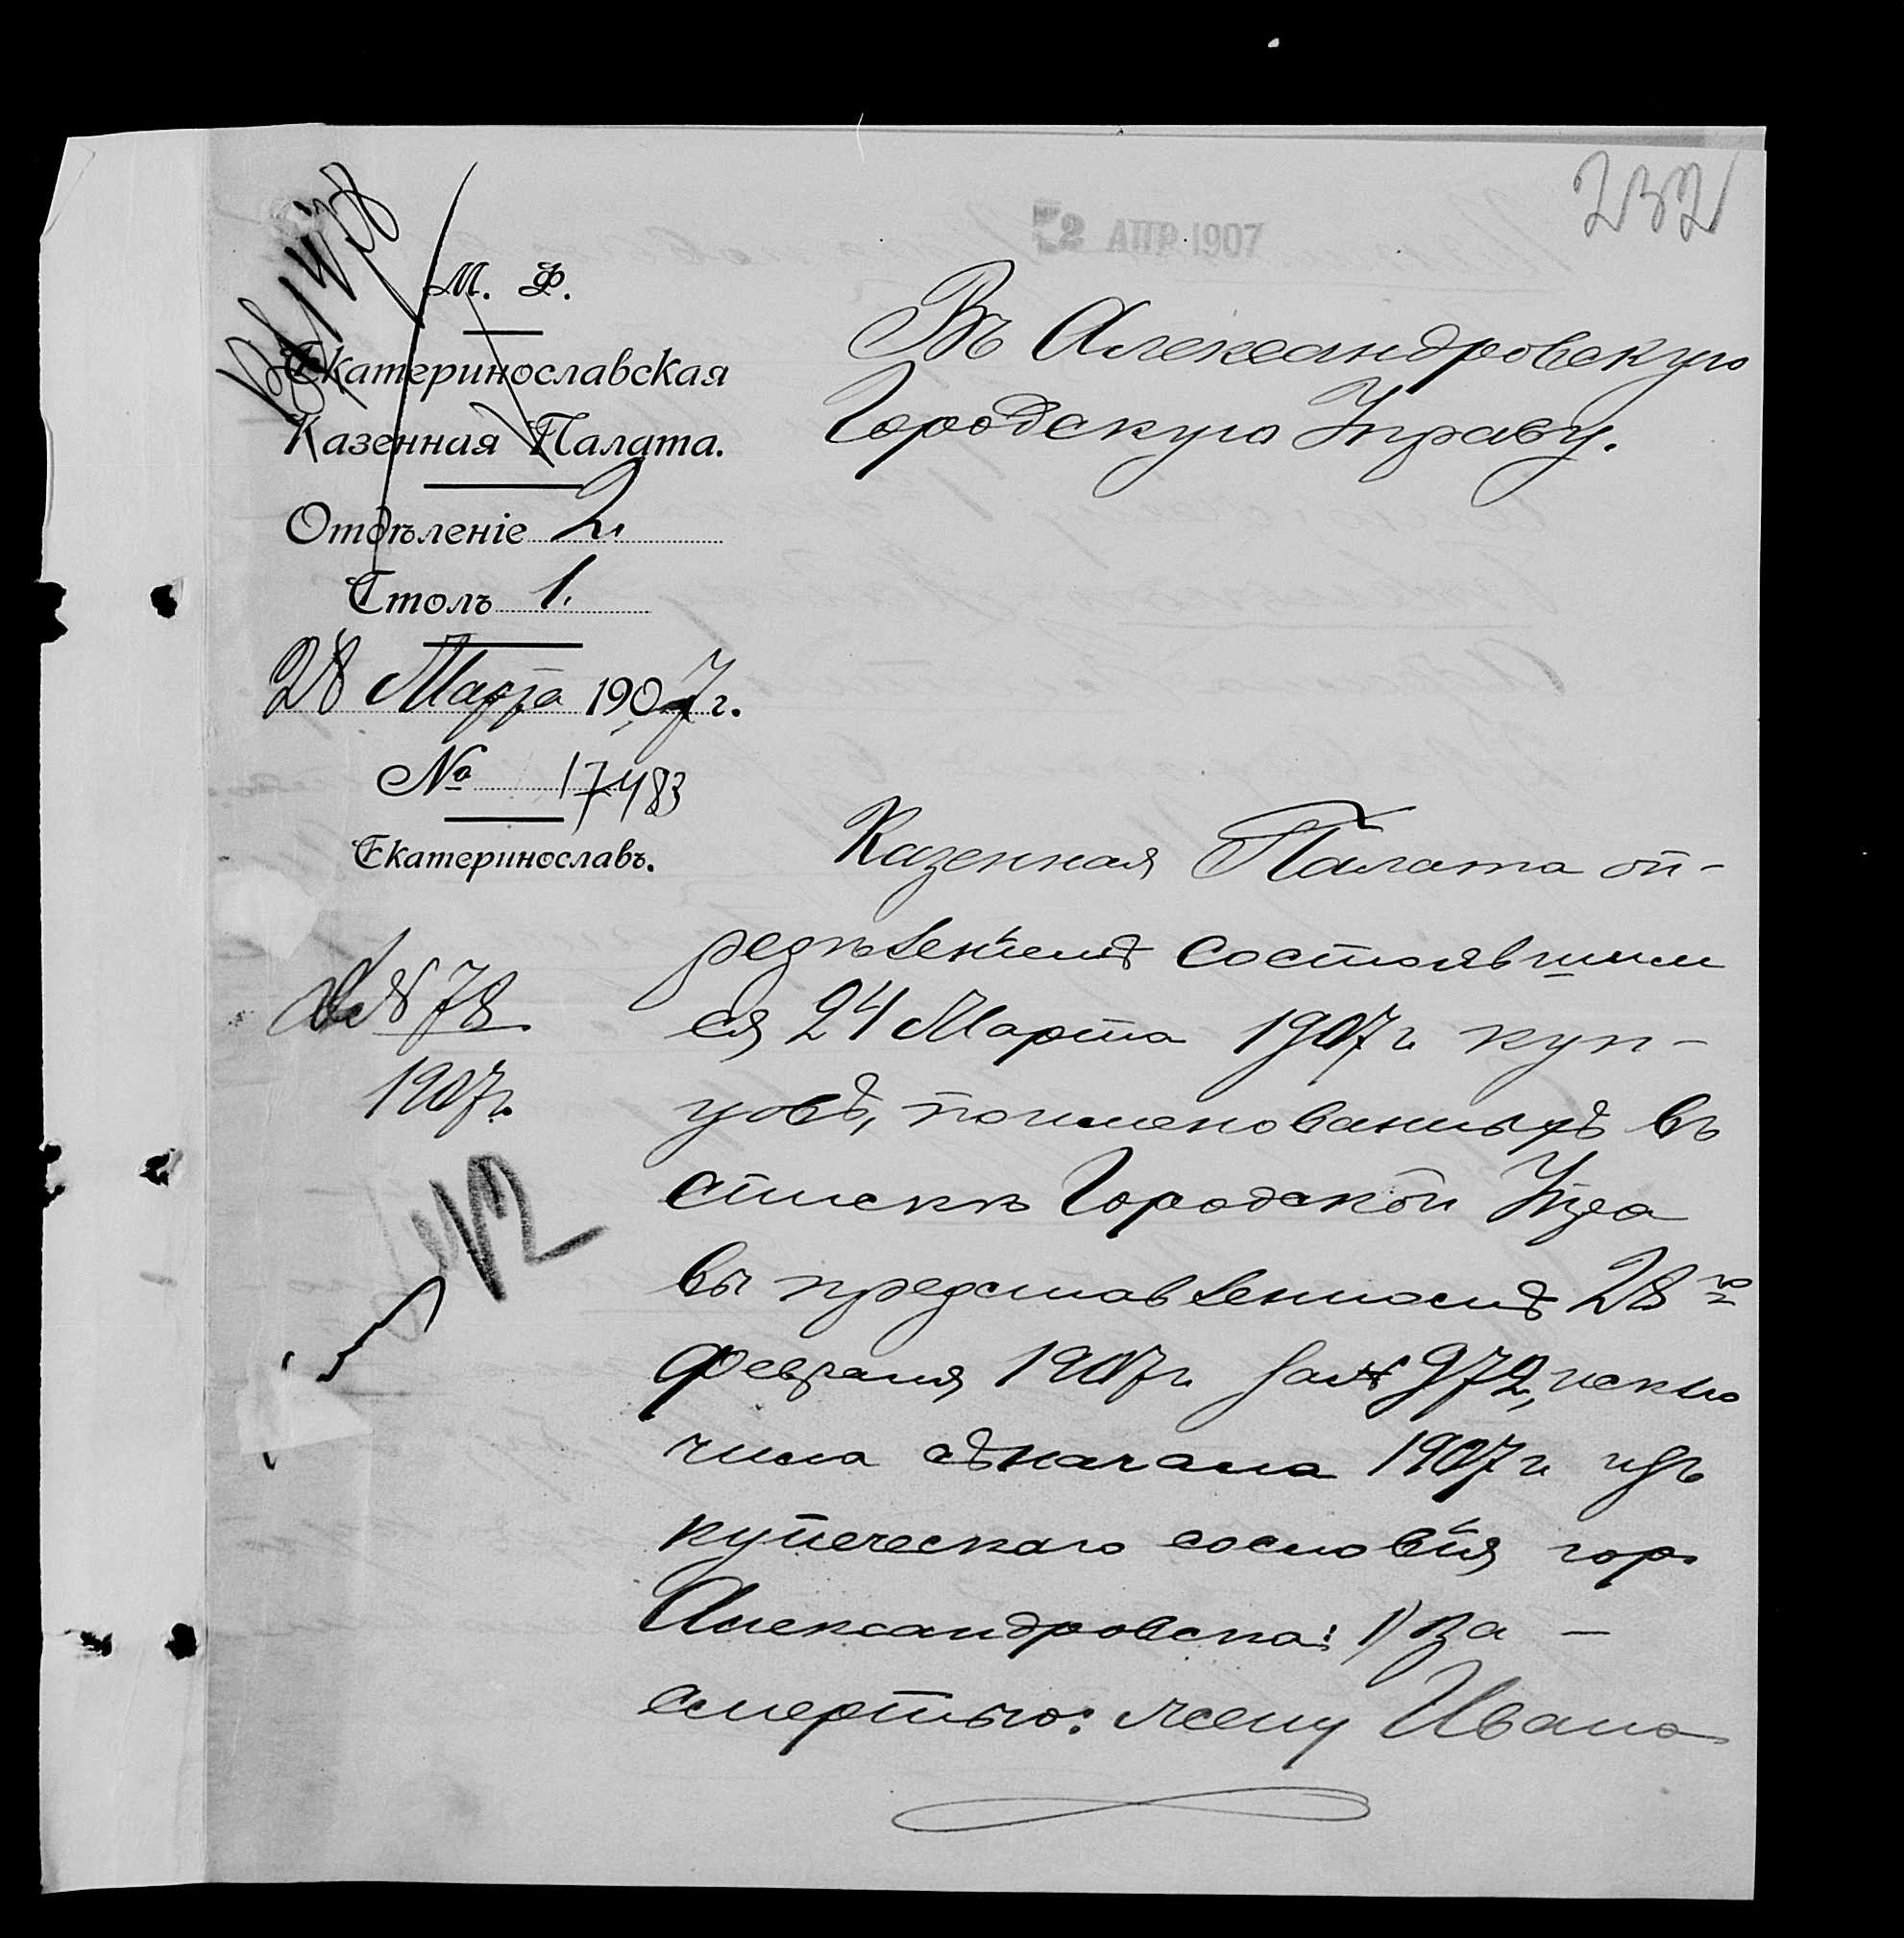 232
2 АПР. 1907
М. Ф.
Екатеринославская
Казенная Палата.
Отдѣленіе 2.
Столъ 1.
28 Марта 1907 г.
№ 17483
Екатеринославъ.
№ 78
1907 г.
Въ Александровскую
Городскую Управу.
Казенная Палата оп-
редѣленіемъ состоявшим
ся 24 Марта 1907 г. куп-
цовъ, поименованныхъ въ
спискѣ Городской Упра
вы представленномъ 28го
Февраля 1907 г. за № 972, исклю
чила съ начала 1907 г. изъ
купеческаго сословія гор.
Александровска: 1) За –
смертью: жену Ивана